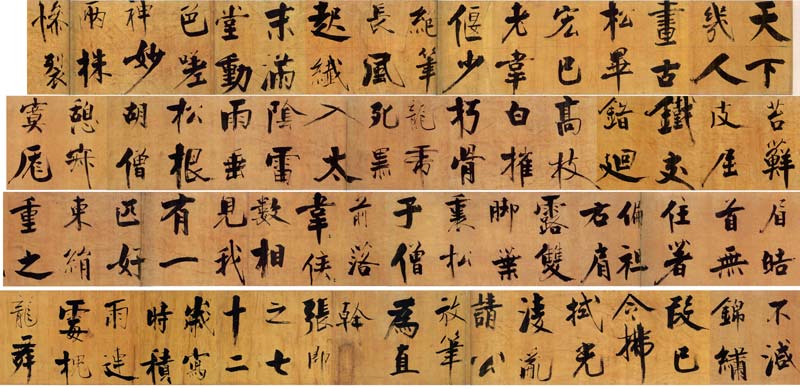 天下
幾人
畫古
松畢
宏已
老韋
偃少
絕筆
長風
起纖
末滿
堂動
色嗟
神妙
兩株
慘裂
苔蘚
皮屈
鐵交
錯迴
高枝
白摧
朽骨
龍虎
死黑
入太
陰雷
雨垂
松根
胡僧
憩寂
寞厖
眉皓
首無
住著
偏袒
右肩
露雙
脚葉
裏松
子僧
前落
韋侯
數相
見我
有一
匹好
東絹
重之
不減
錦繡
段已
令拂
拭光
淩亂
請公
放筆
為直
幹
張即
之七
十二
歲寫
時積
雨連
龍舞